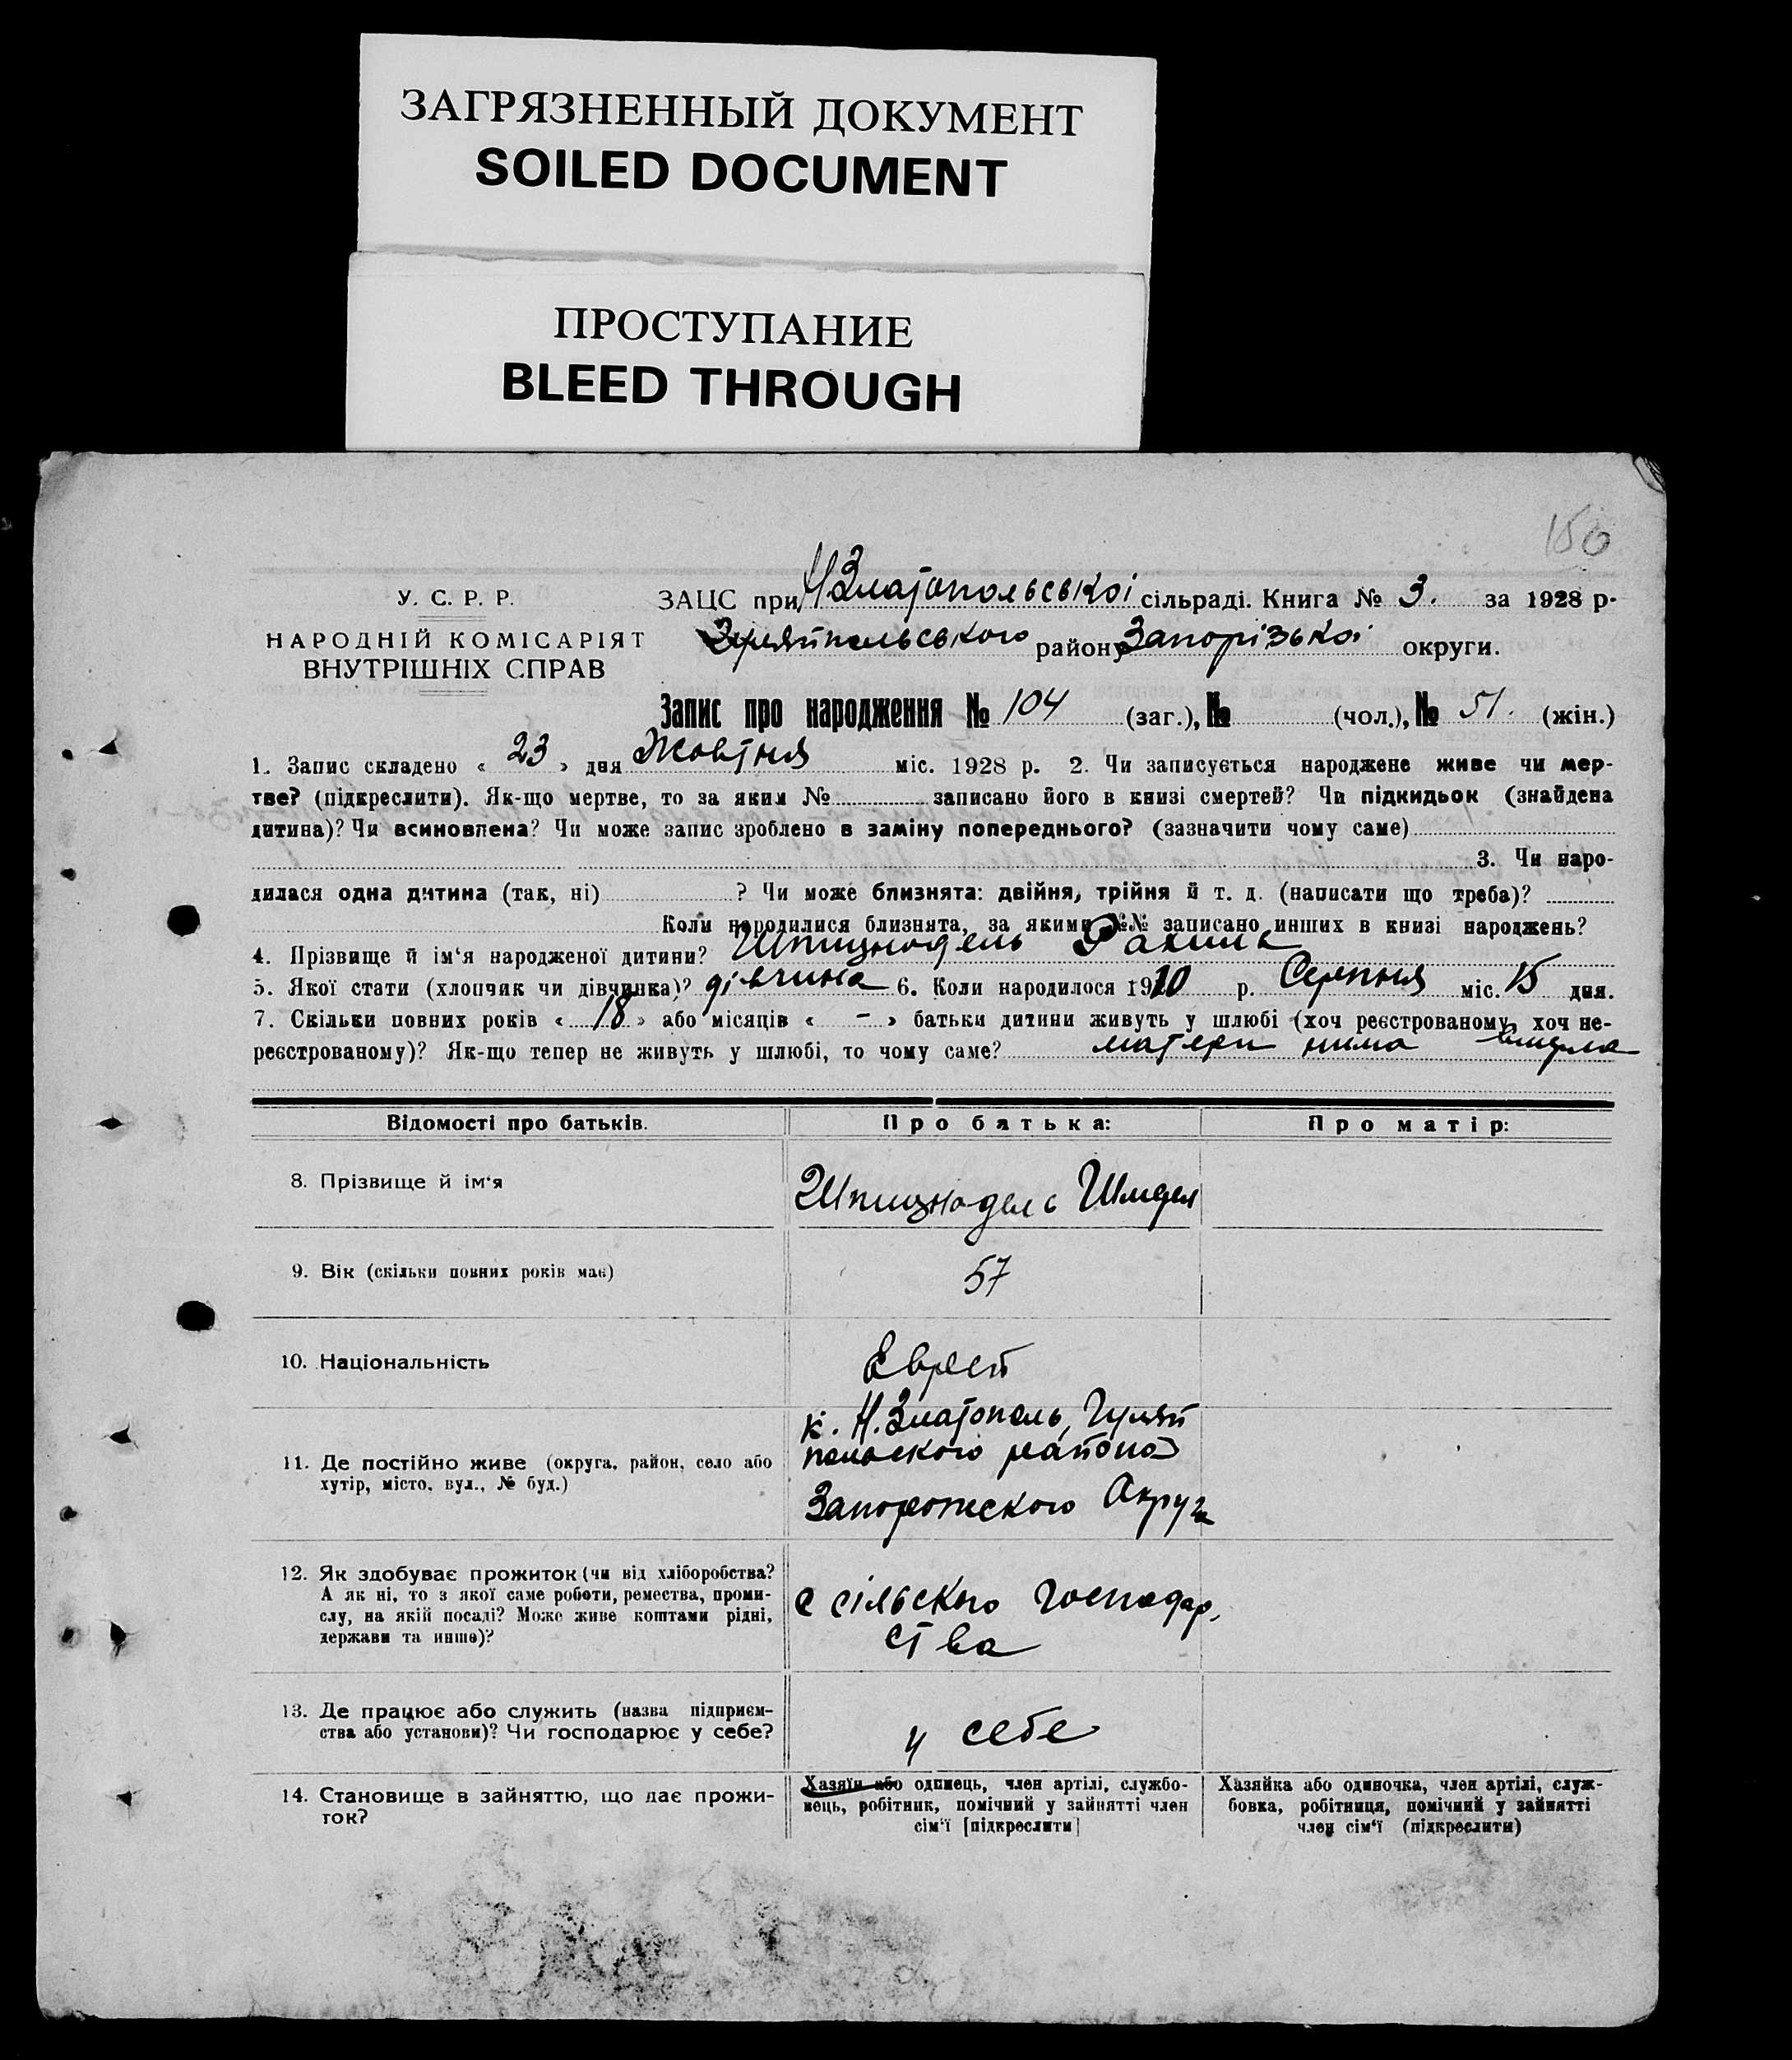 ЗАГРЯЗНЕННЫЙ ДОКУМЕНТ
SOILED DOCUMENT
ПРОСТУПАНИЕ
BLEED THROUGH
150
У. С. Р. Р.
НАРОДНІЙ КОМІСАРІЯТ
ВНУТРІШНІХ СПРАВ
ЗАЦС при Н Златопольської сільраді. Книга № 3. за 1928 р.
району Запорізької округи.
Запис про народження № 104 (заг.), № (чол.), № 51. (жін.)
1. Запис складено « 23 » дня Жовтня міс. 1928 р. 2. Чи записується народжене живе чи мер-
тве? (підкреслити). Як-що мертве, то за яким № записано його в книзі смертей? Чи підкидьок (знайдена
дитина)? Чи всиновлена? Чи може запис зроблено в заміну попереднього? (зазначити чому саме)
3. Чи наро-
дилася одна дитина (так, ні) ? Чи може близнята: двійня, трійня й т. д. (написати що треба)?
Коли народилися близнята, за якими №№ записано инших в книзі народжень?
4. Прізвище й ім‘я народженої дитини? Шпицнадель Рахиль
5. Якої стати (хлопчик чи дівчинка)? дівчина 6. Коли народилося 1910 р. Серпня міс. 15 дня.
7. Скільки повних років « 18 » або місяців « - » батьки дитини живуть у шлюбі (хоч реєстрованому, хоч не-
реєстрованому)? Як-що тепер не живуть у шлюбі, то чому саме? матери нима вмерла
Відомості про батьків. Про батька: Про матір:
8. Прізвище й ім‘я Шпицнадель Шмарел
9. Вік (скільки повних років має) 57
10. Національність Еврей
к. Н. Златополь, Гуляй
11. Де постійно живе (округа, район, село або польского района
хутір, місто, вул., № буд.)
Запорожского Округа
12. Як здобуває прожиток (чи від хліборобства?
А як ні, то з якої саме роботи, ремества, проми-
слу, на якій посаді? Може живе коштами рідні, с сільского господар,
держави та инше)? ства
13. Де працює або служить (назва підприєм-
ства або установи)? Чи господарює у себе? у себе
14. Становище в зайняттю, що дає прожи-
ток?
Хазяїн або одинець, член артілі, службо-
вець, робітник, помічний у зайнятті член
сім‘ї [підкреслити]
Хазяйка або одиночка, член артілі, служ-
бовка, робітниця, помічний у зайнятті
член сім‘ї (підкреслити)